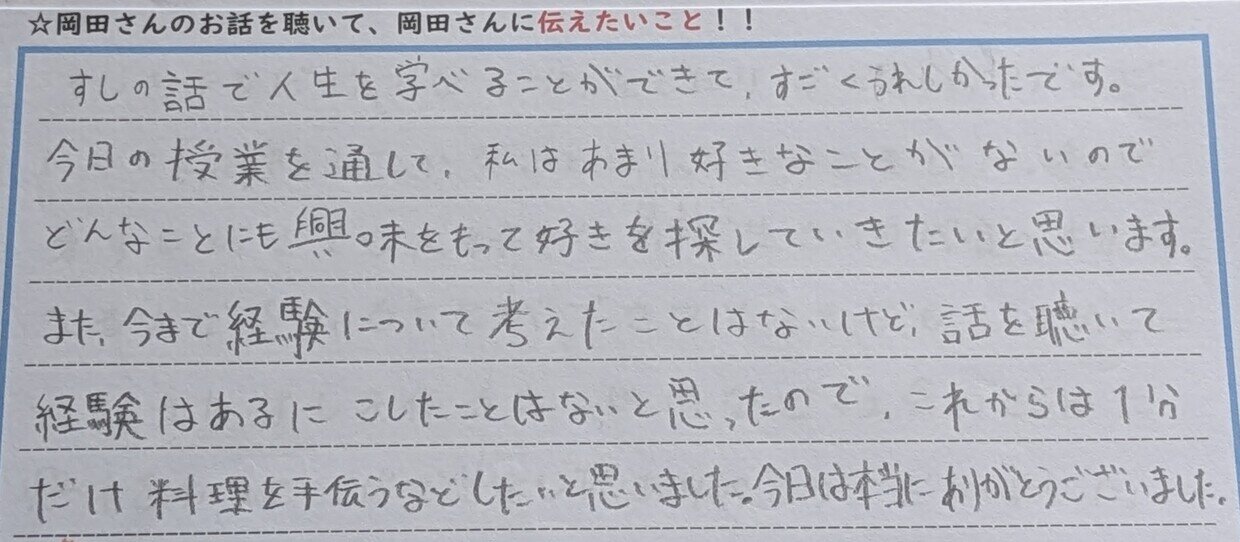 ☆岡田さんのお話を聴いて、岡田さんに伝えたいこと！！
すしの話で人生を学べることができて、すごくうれしかったです。
今日の授業を通して、私はあまり好きなことがないので
どんなことにも興味をもって好きを探していきたいと思います。
また、今まで経験について考えたことはないけど、話を聴いて
経験はあるにこしたことはないと思ったので、これからは1分
だけ料理を手伝うなどしたいと思いました。今日は本当にありがとうございました。